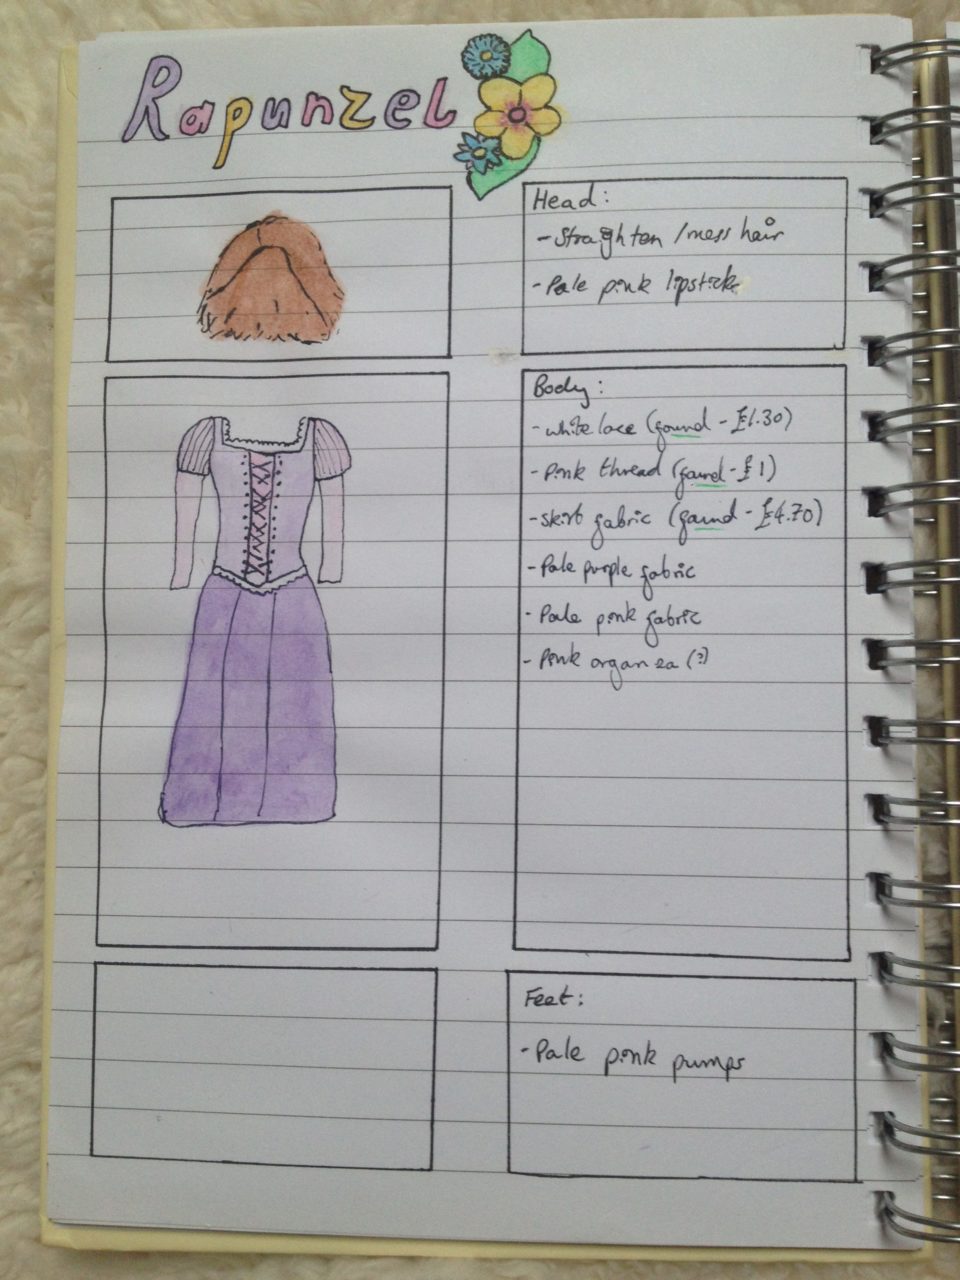 Rapunzel
Head:
- Straighten / mess hair
- Pale pink lipstick
Body:
- white lace (found - £1.30)
- Pink thread (found - £1)
- Skirt fabric (found - £4.70)
- Pale purple fabric
- Pale pink fabric
- Pink organza (?)
Feet:
- Pale pink pumps